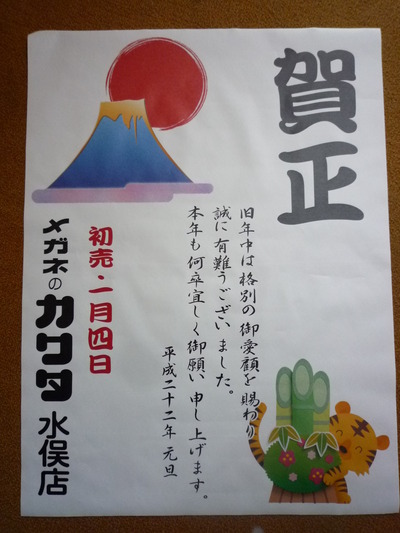 賀正
旧年中は格別の御愛顧を賜わり
誠に有難うございました。
本年も何卒宜しく御願い申し上げます。
平成二十二年 元旦
初売・一月四日
メガネのカワタ 水俣店